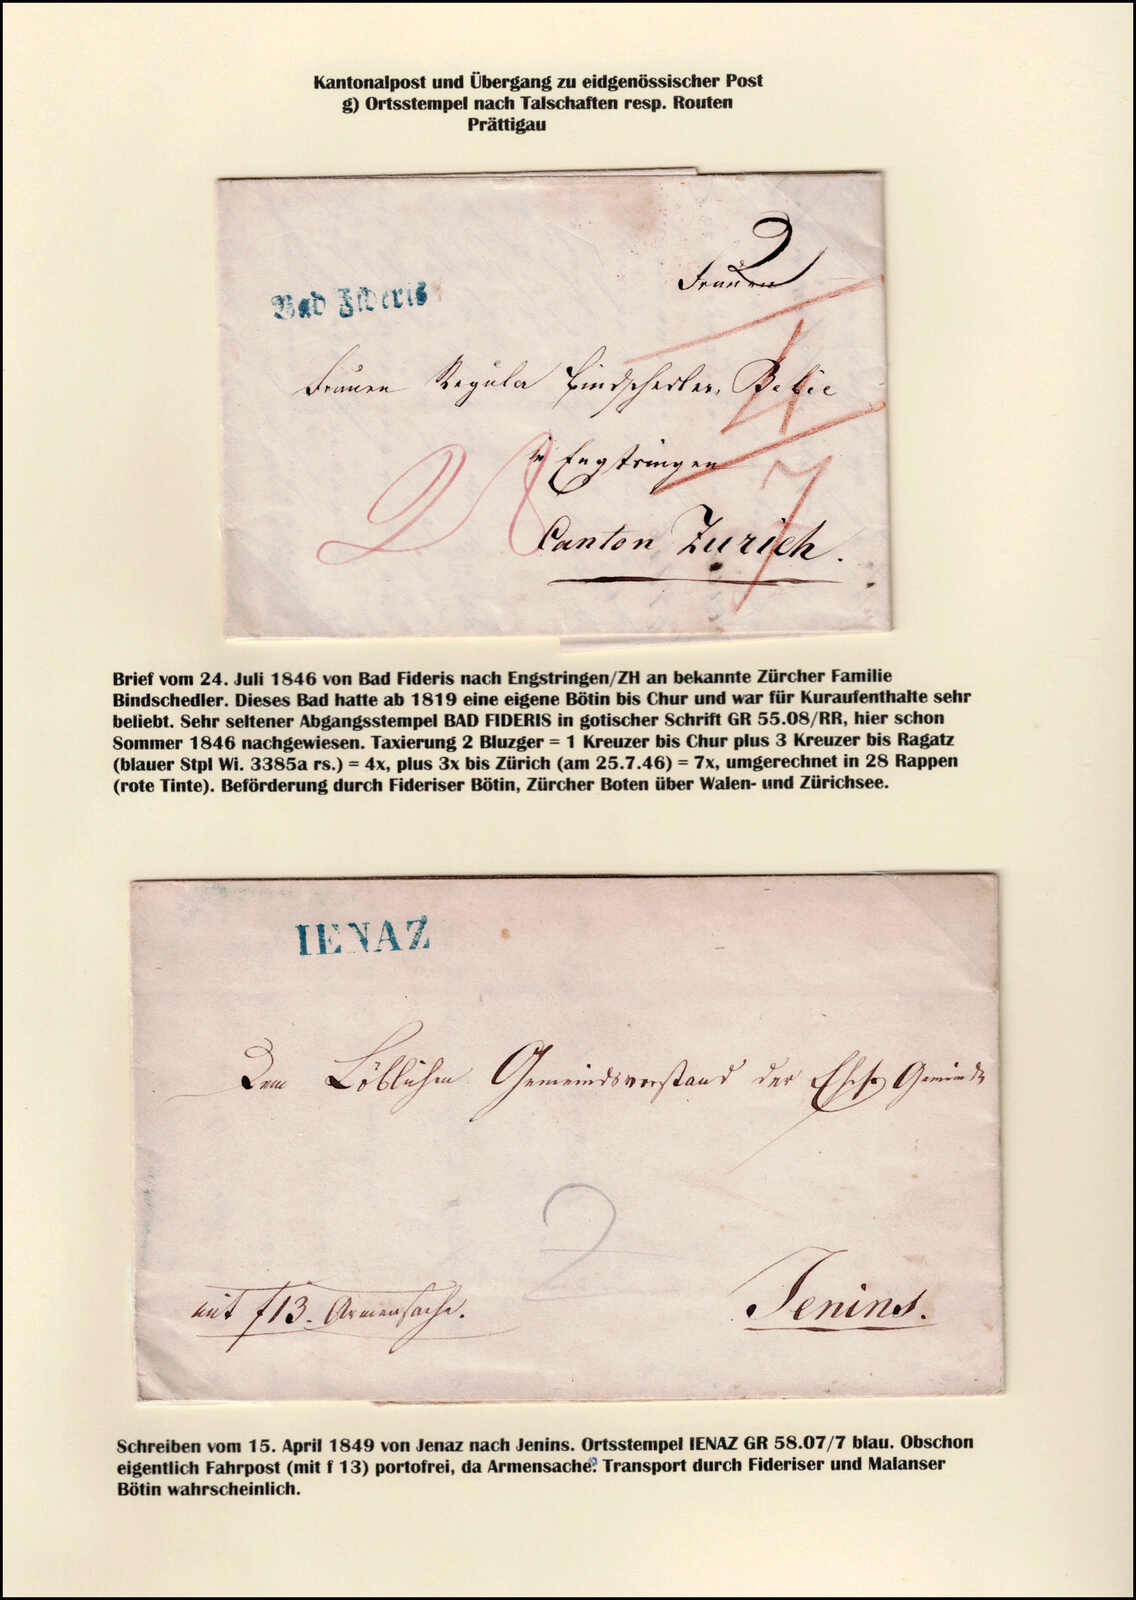 Kantonalpost und Übergang zu eidgenössischer Post
g) Ortsstempel nach Talschaften resp. Routen
Prättigau
2
Frauen
Bad Fideris
4
Frauen Regula Bindschedler,
in Engstringen
28
7
Canton Zürich.
Brief vom 24. Juli 1846 von Bad Fideris nach Engstringen/ZH an bekannte Zürcher Familie
Bindschedler. Dieses Bad hatte ab 1819 eine eigene Bötin bis Chur und war für Kuraufenthalte sehr
beliebt. Sehr seltener Abgangsstempel BAD FIDERIS in gotischer Schrift GR 55.08/RR, hier schon
Sommer 1846 nachgewiesen. Taxierung 2 Bluzger = 1 Kreuzer bis Chur plus 3 Kreuzer bis Ragatz
(blauer Stpl Wi. 3385a rs.) = 4x, plus 3x bis Zürich (am 25.7.46) = 7x, umgerechnet in 28 Rappen
(rote Tinte). Beförderung durch Fideriser Bötin, Zürcher Boten über Walen- und Zürichsee.
IENAZ
Dem Löblichen Gemeindsvorstand der Gemeinde
2
mit f 13. Armensache.
Jenins.
Schreiben vom 15. April 1849 von Jenaz nach Jenins. Ortsstempel IENAZ GR 58.07/7 blau. Obschon
eigentlich Fahrpost (mit f 13) portofrei, da Armensache? Transport durch Fideriser und Malanser
Bötin wahrscheinlich.